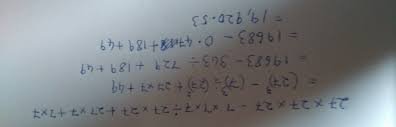 27 × 27 × 27 - 7 × 7 × 7 ÷ 27 × 27 + 27 × 7 + 7×7
= (27)³ - (7)³ ÷ (27)² + 27×7 + 49
19683 - 343 ÷ 729 + 189 + 49
= 19683 - 0.47 + 189 + 49
= 19,920.53